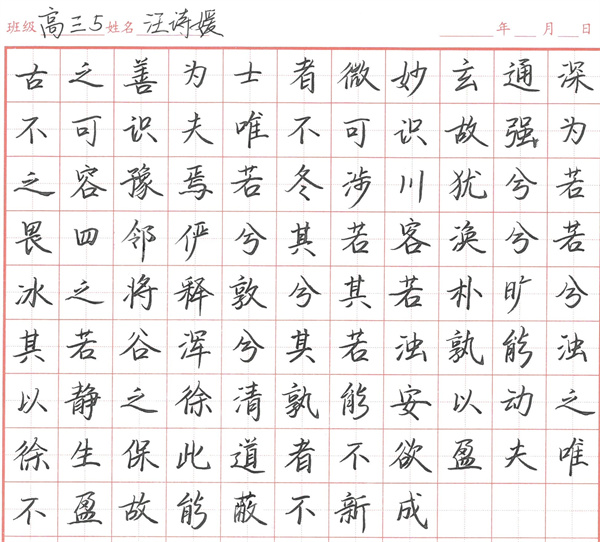 班级 高三5 姓名 汪诗媛 年 月 日
古之善为士者微妙玄通深
不可识夫唯不可识故强为
之容豫焉若冬涉川犹兮若
畏四邻俨兮其若客涣兮若
冰之将释敦兮其若朴旷兮
其若谷浑兮其若浊孰能浊
以静之徐清孰能安以动之
徐生保此道者不欲盈夫唯
不盈故能蔽不新成